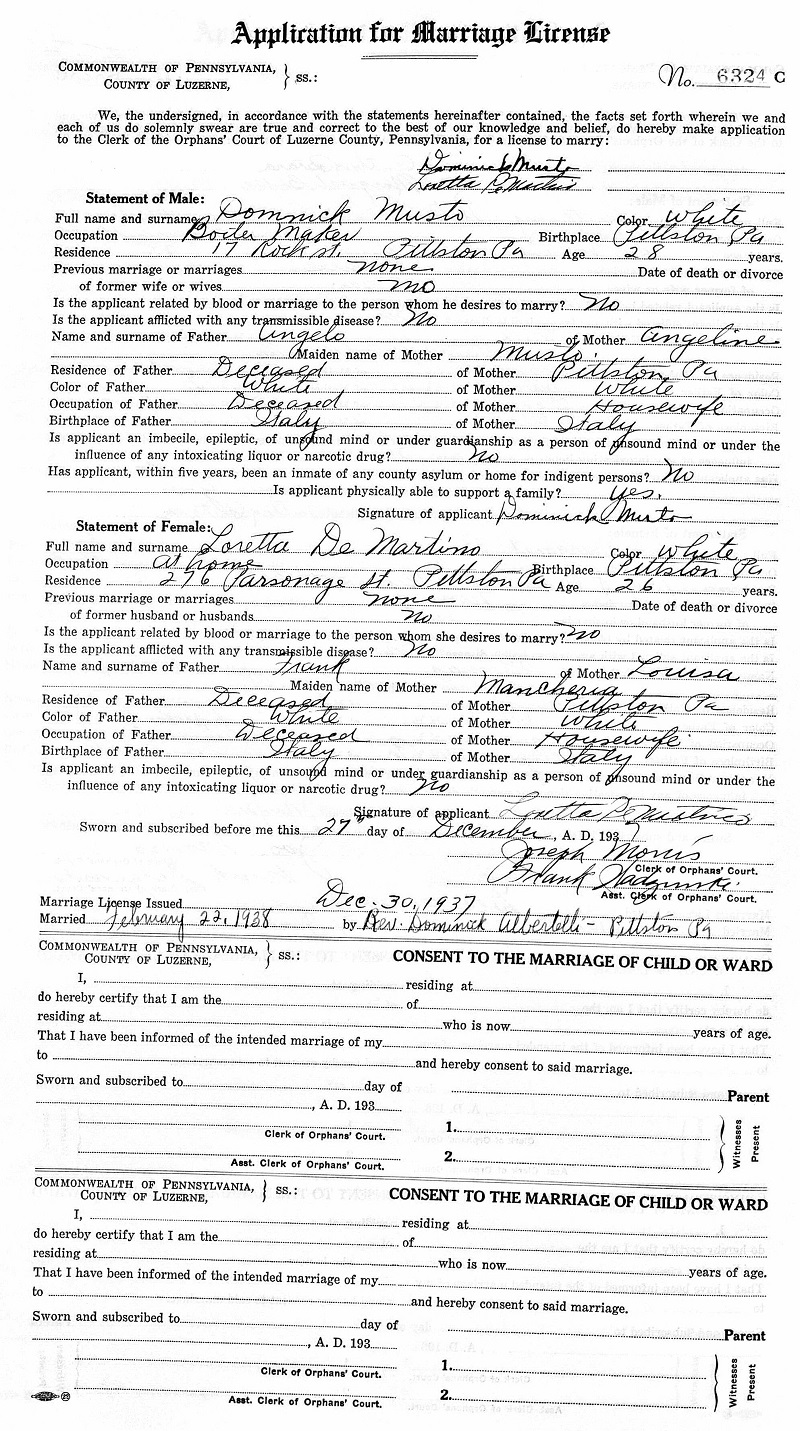 Application for Marriage License
COMMONWEALTH OF PENNSYLVANIA, } ss.: No. 6324 C
COUNTY OF LUZERNE,
We, the undersigned, in accordance with the statements hereinafter contained, the facts set forth wherein we and
each of us do solemnly swear are true and correct to the best of our knowledge and belief, do hereby make application
to the Clerk of the Orphans' Court of Luzerne County, Pennsylvania, for a license to marry:
Dominick Musto
Loretta De Martino
Statement of Male:
Full name and surname Domnick Musto Color White
Occupation Boiler Maker Birthplace Pittston Pa
Residence 17 Rock st. Pittston Pa Age 28 years.
Previous marriage or marriages none Date of death or divorce
of former wife or wives no
Is the applicant related by blood or marriage to the person whom he desires to marry? No
Is the applicant afflicted with any transmissible disease? No
Name and surname of Father Angelo of Mother Angeline
Maiden name of Mother Musto.
Residence of Father Deceased of Mother Pittston, Pa
Color of Father White of Mother White
Occupation of Father Deceased of Mother Housewife
Birthplace of Father Italy of Mother Italy
Is applicant an imbecile, epileptic, of unsound mind or under guardianship as a person of unsound mind or under the
influence of any intoxicating liquor or narcotic drug? No
Has applicant, within five years, been an inmate of any county asylum or home for indigent persons? No
Is applicant physically able to support a family? yes.
Signature of applicant Dominick Musto
Statement of Female:
Full name and surname Loretta De Martino Color White
Occupation at home Birthplace Pittston Pa
Residence 276 Parsonage st. Pittston Pa Age 26 years.
Previous marriage or marriages none Date of death or divorce
of former husband or husbands no
Is the applicant related by blood or marriage to the person whom she desires to marry? no
Is the applicant afflicted with any transmissible disease? No
Name and surname of Father Frank of Mother Louisa
Maiden name of Mother Mancheria
Residence of Father Deceased of Mother Pittston Pa
Color of Father White of Mother White
Occupation of Father Deceased of Mother Housewife
Birthplace of Father Italy of Mother Italy
Is applicant an imbecile, epileptic, of unsound mind or under guardianship as a person of unsound mind or under the
influence of any intoxicating liquor or narcotic drug? No
Signature of applicant Loretta De Martino
Sworn and subscribed before me this 27" day of December, A. D. 1937
Joseph Morris
Clerk of Orphans' Court.
Frank
Asst. Clerk of Orphans' Court.
Marriage License Issued Dec. 30, 1937
Married February 22, 1938 by Rev. Dominick Albertelli - Pittston Pa
COMMONWEALTH OF PENNSYLVANIA, } ss.: CONSENT TO THE MARRIAGE OF CHILD OR WARD
COUNTY OF LUZERNE,
I, residing at
do hereby certify that I am the of
residing at who is now years of age.
That I have been informed of the intended marriage of my
to and hereby consent to said marriage.
Sworn and subscribed to day of Parent
, A. D. 193
1.
Clerk of Orphans' Court.
2.
Asst. Clerk of Orphans' Court.
Witnesses
Present
COMMONWEALTH OF PENNSYLVANIA, } ss.: CONSENT TO THE MARRIAGE OF CHILD OR WARD
COUNTY OF LUZERNE,
I, residing at
do hereby certify that I am the of
residing at who is now years of age.
That I have been informed of the intended marriage of my
to and hereby consent to said marriage.
Sworn and subscribed to day of Parent
, A. D. 193
1.
Clerk of Orphans' Court.
2.
Asst. Clerk of Orphans' Court.
Witnesses
Present